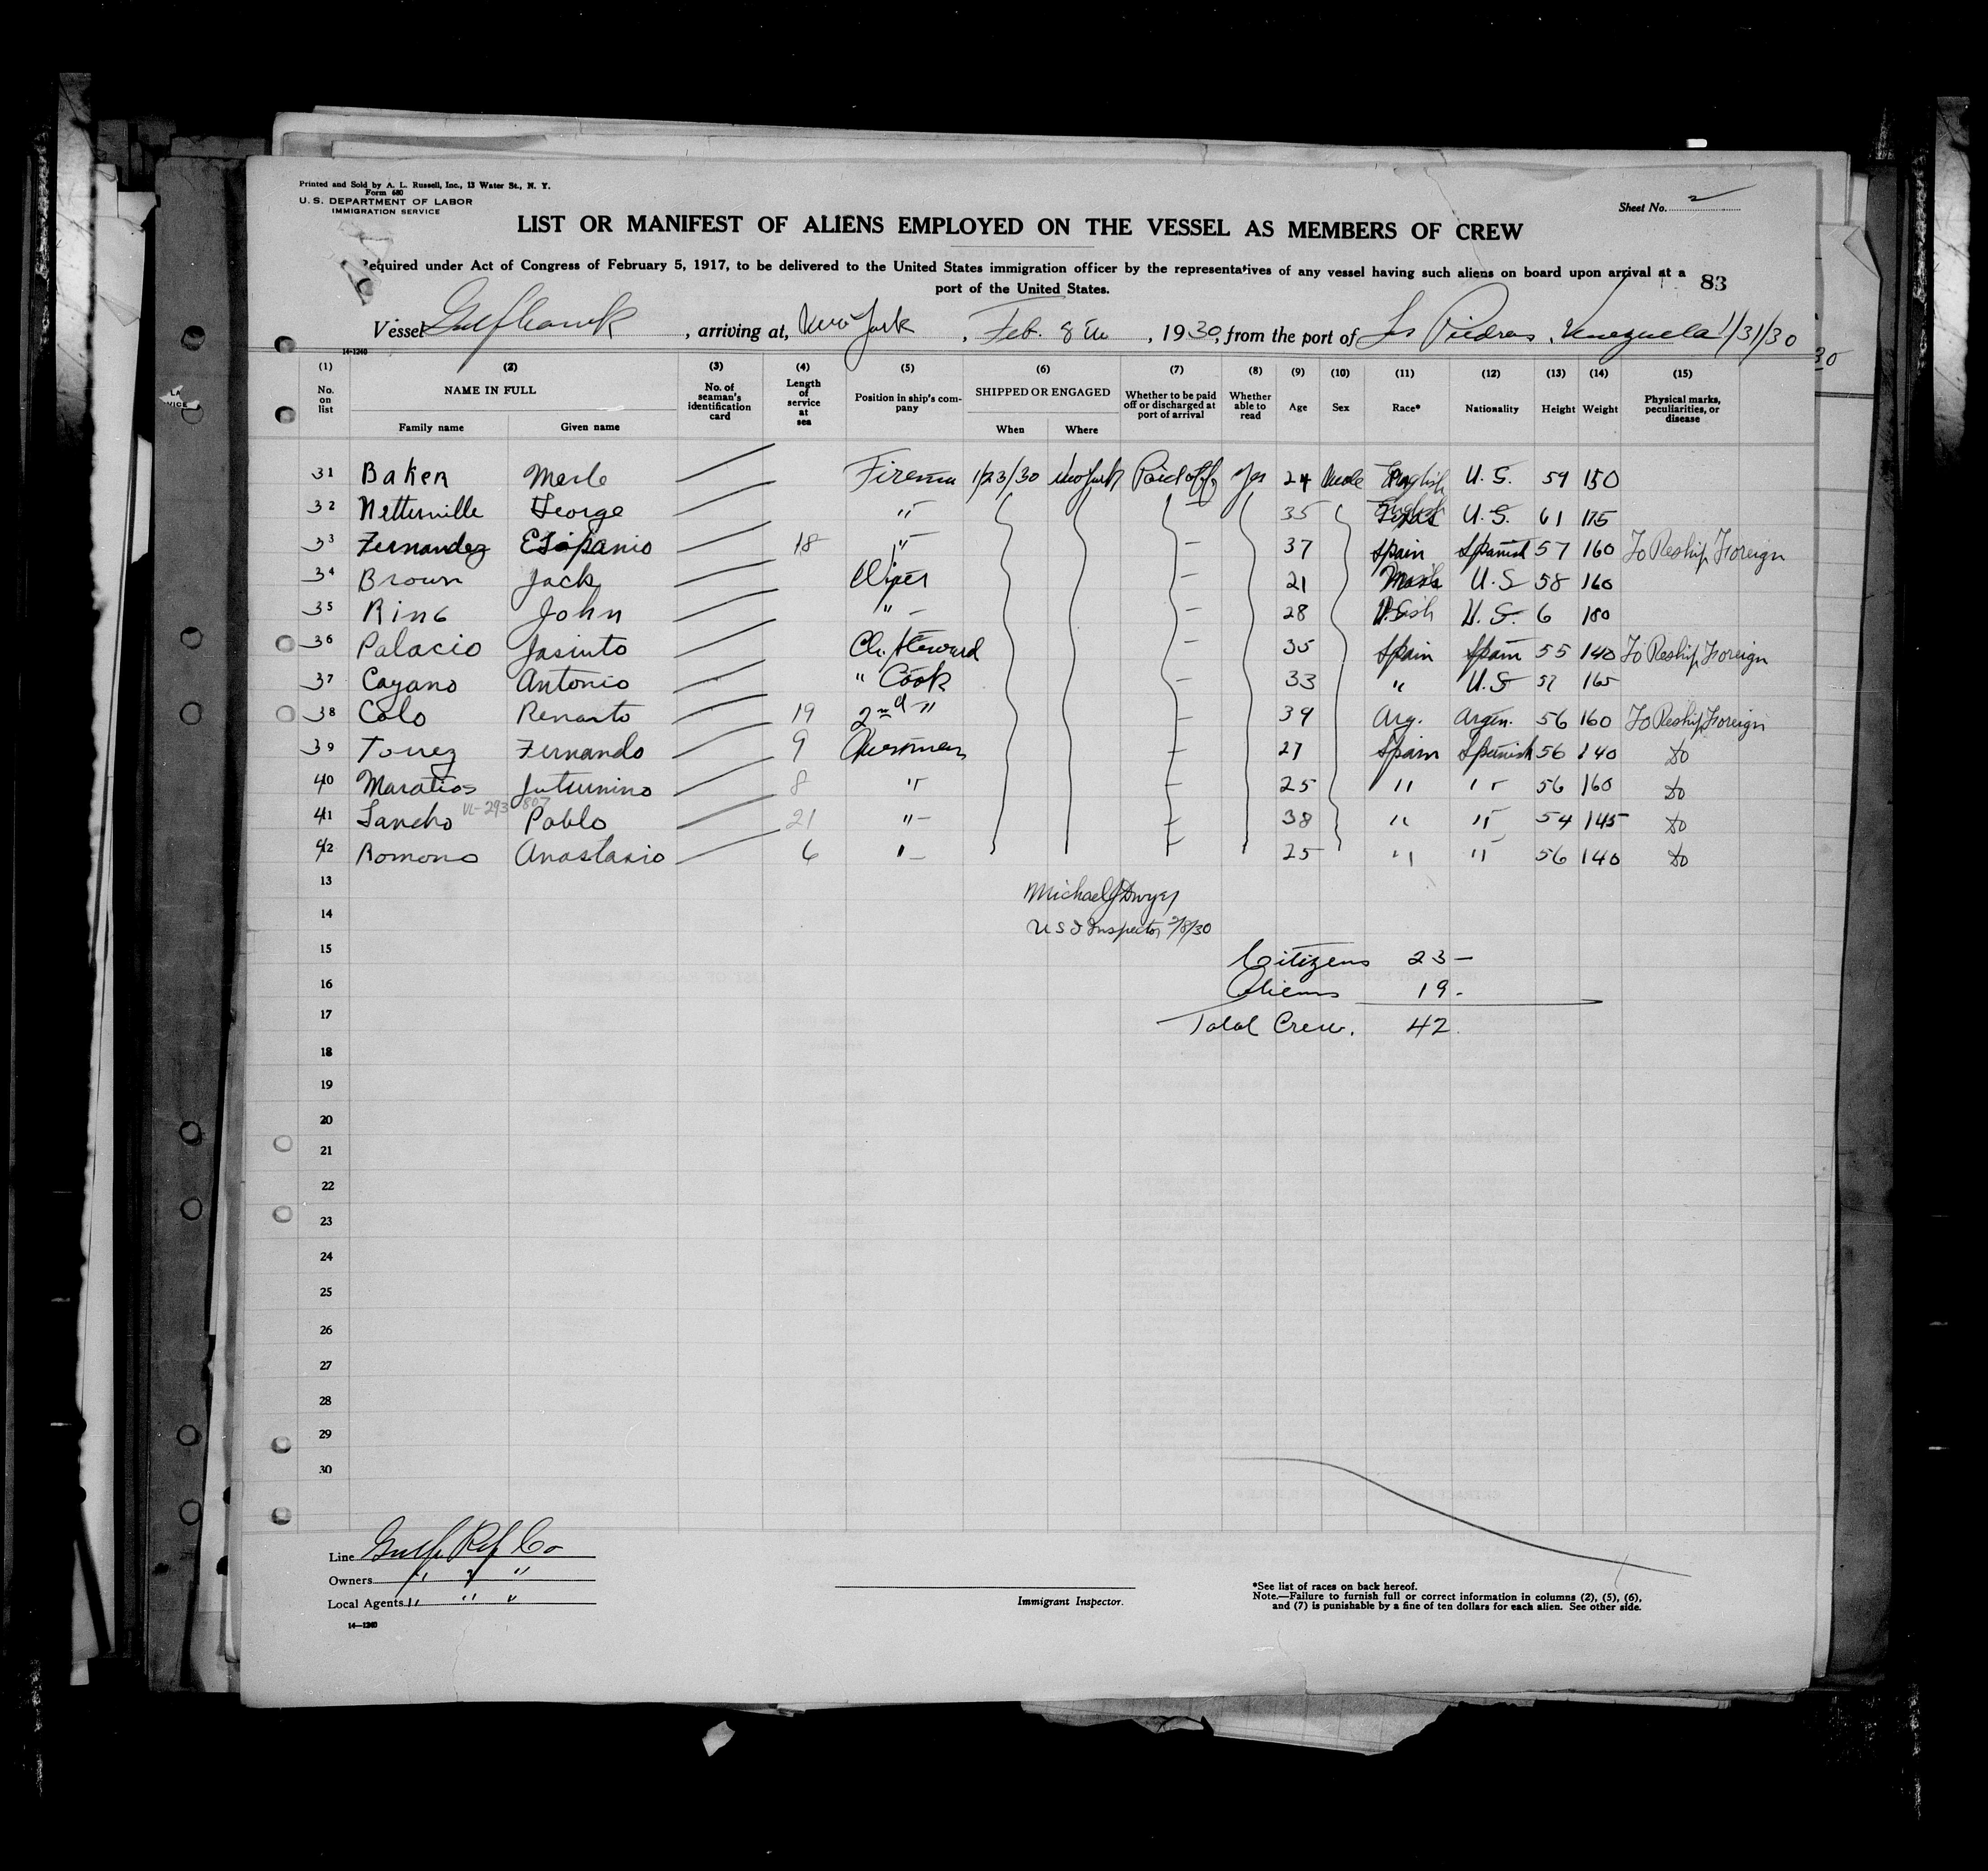 Printed and Sold by A. L. Russell, Inc., 13 Water St., N. Y.
Form 680
U. S. DEPARTMENT OF LABOR
IMMIGRATION SERVICE
Sheet No. 2
LIST OR MANIFEST OF ALIENS EMPLOYED ON THE VESSEL AS MEMBERS OF CREW
Required under Act of Congress of February 5, 1917, to be delivered to the United States immigration officer by the representatives of any vessel having such aliens on board upon arrival at a
port of the United States.
83
Vessel Gulfhawk, arriving at, New York, Feb. 8th, 1930, from the port of Las Piedras, Venezuela 1/31/30
14-1240
(1) (2) (3) (4) (5) (6) (7) (8) (9) (10) (11) (12) (13) (14) (15)
No. on list NAME IN FULL No. of seaman's identification card Length of service at sea Position in ship's company SHIPPED OR ENGAGED Whether to be paid off or discharged at port of arrival Whether able to read Age Sex Race* Nationality Height Weight Physical marks, peculiarities, or disease
Family name Given name When Where
31 Baker Merle Fireman 1/23/30 New York Paid off Yes 24 Male English U.S. 59 150
32 Netterville George " 35 English U.S. 61 175
33 Fernandez 18 " 37 Spain Spanish 57 160 To Reship Foreign
34 Brown Jack Wiper 21 U.S 58 160
35 Ring John " 28 U.S. 6 180
36 Palacio Jasinto Ch. Steward 35 Spain Spain 55 140 To Reship Foreign
37 Cayano Antonio " Cook 33 " U.S 57 165
38 Colo Renarto 19 2nd " 39 Arg. Argen. 56 160 To Reship Foreign
39 Torrez Fernando 9 Messmen 27 Spain Spanish 56 140 Do
40 Maratios 8 " 25 " " 56 160 Do
41 Sancho Pablo 21 " 38 " " 54 145 Do
42 Romono Anastasio 6 " 25 " " 56 140 Do
13
Michael J Dwyer
14
U S I Inspector 2/8/30
15
Citizens 23
16
Aliens 19
17
Total Crew. 42
18
19
20
21
22
23
24
25
26
27
28
29
30
Line Gulf Ref Co
Owners " " "
Local Agents " " "
14-1240
Immigrant Inspector.
*See list of races on back hereof.
Note.—Failure to furnish full or correct information in columns (2), (5), (6),
and (7) is punishable by a fine of ten dollars for each alien. See other side.